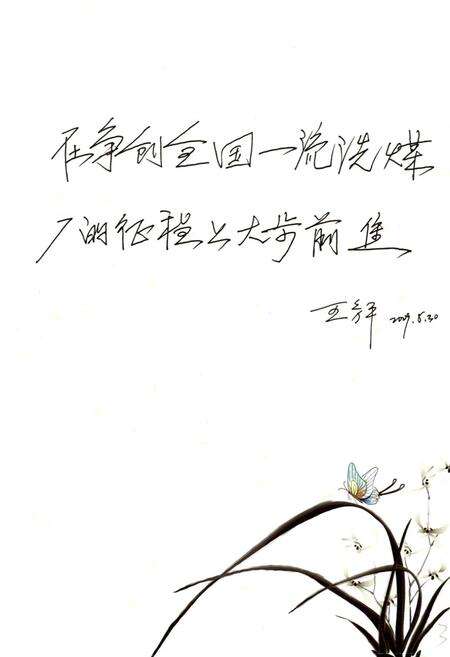 在争创全国一流洗煤
厂的征程上大步前進
2009.5.30